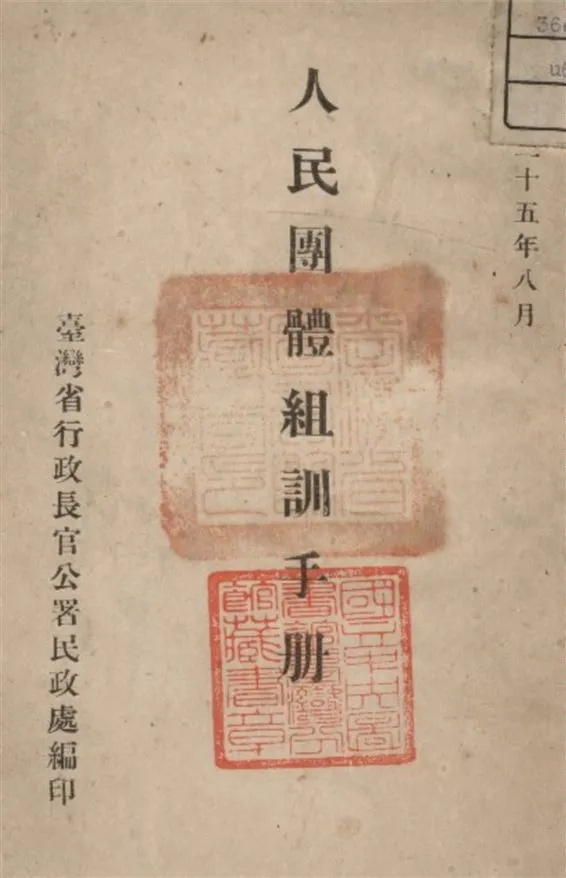 十五年八月
人民團體組訓手册
臺灣省行政長官公署民政處編印
國立中央圖
書館臺灣分
館藏書章